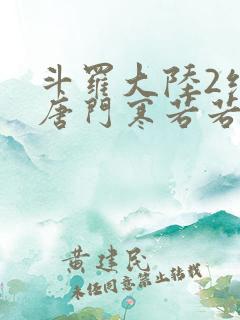 斗羅大陸2
唐門寒若若
黃建民
未经同意禁止转载